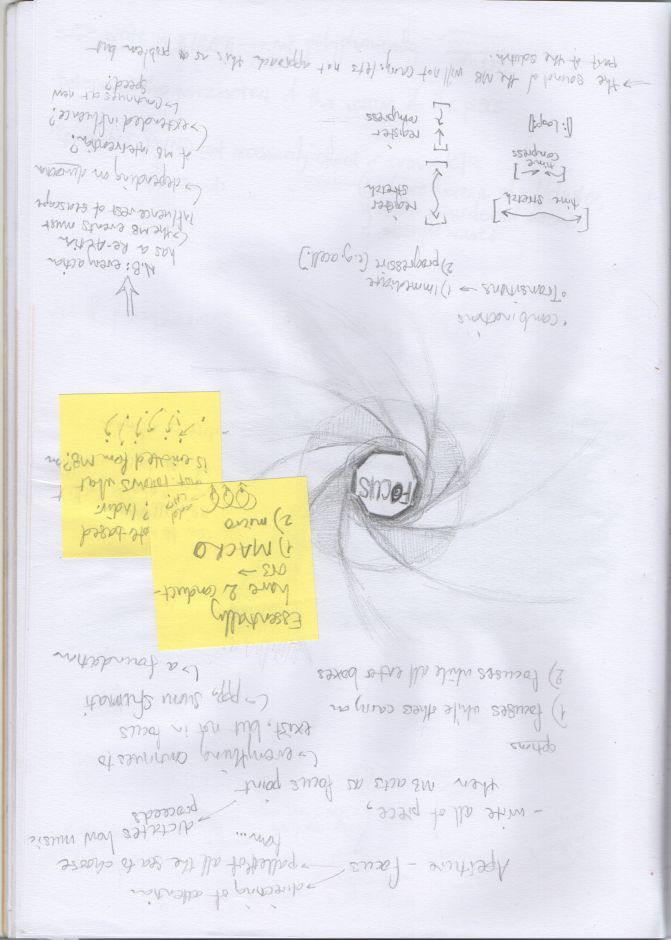 → directing of attention
Aperture - Focus → pallet of all the sea to choose
from...
→ dictates how music
proceeds
- write all of piece,
then MB acts as focus point
↳ everything continues to
exist, but not in focus
↳ ppp, suoni sfumati
↳ a foundation
options
1) focuses while others carry on
2) focuses while all enter boxes
Essentially
have 2 conduct-
ors →
1) MACRO
2) micro
-based
add? Indiv.
inst. knows what
is enabled from MB?
FOCUS
°combinations
°Transitions → 1) immediate
2) progressive (e.g. accell.)
N.B: every action
has a Re-Action
↳ the MB events must
influence rest of seascape
↳ depending on duration
of MB intervention?
↳ extended influence?
↳ continues at new
speed?
time stretch
register
stretch
time
compress
register
compress
[|: Loop :|]
→ the sound of the MB will not change; let's not approach this as a problem but
part of the solution.